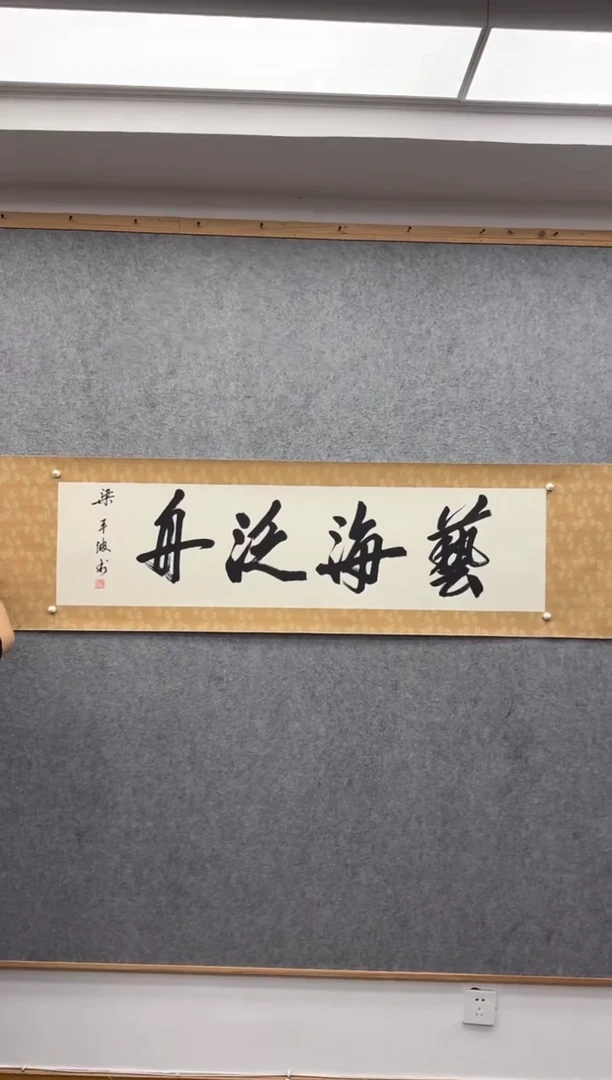 藝海泛舟
梁平波书